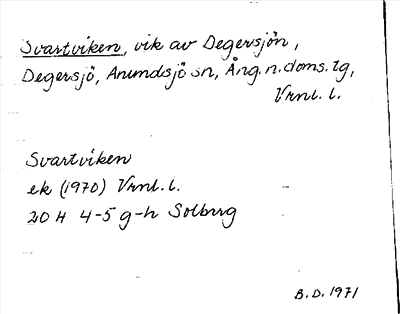 Svartviken, vik av Degersjön,
Degersjö, Anundsjö sn, Ång. n. doms. tg,
Vrnl. l.
Svartviken
ek (1970) Vrnl. l.
20 H 4-5 g-h Solberg
B. D. 1971